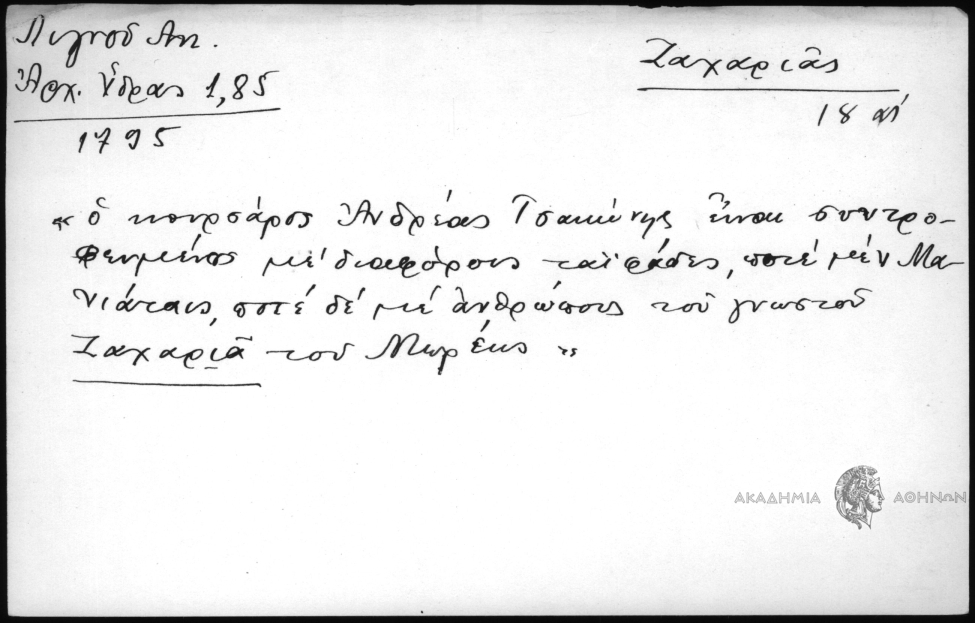 Λιγνοῦ Αντ.
Ἀρχ. Ὕδρας 1,85
1795
Ζαχαριᾶς
18 αἰ
«ὁ κουρσάρος Ἀνδρέας Τσακώνης εἶναι συντρο-
φευμένος μέ διαφόρους ταϊφάδες, ποτέ μέν Μα-
νιάταις, ποτέ δέ μέ ἀνθρώπους τοῦ γνωστοῦ
Ζαχαριᾶ τοῦ Μωρέως»
ΑΚΑΔΗΜΙΑ ΑΘΗΝΩΝ